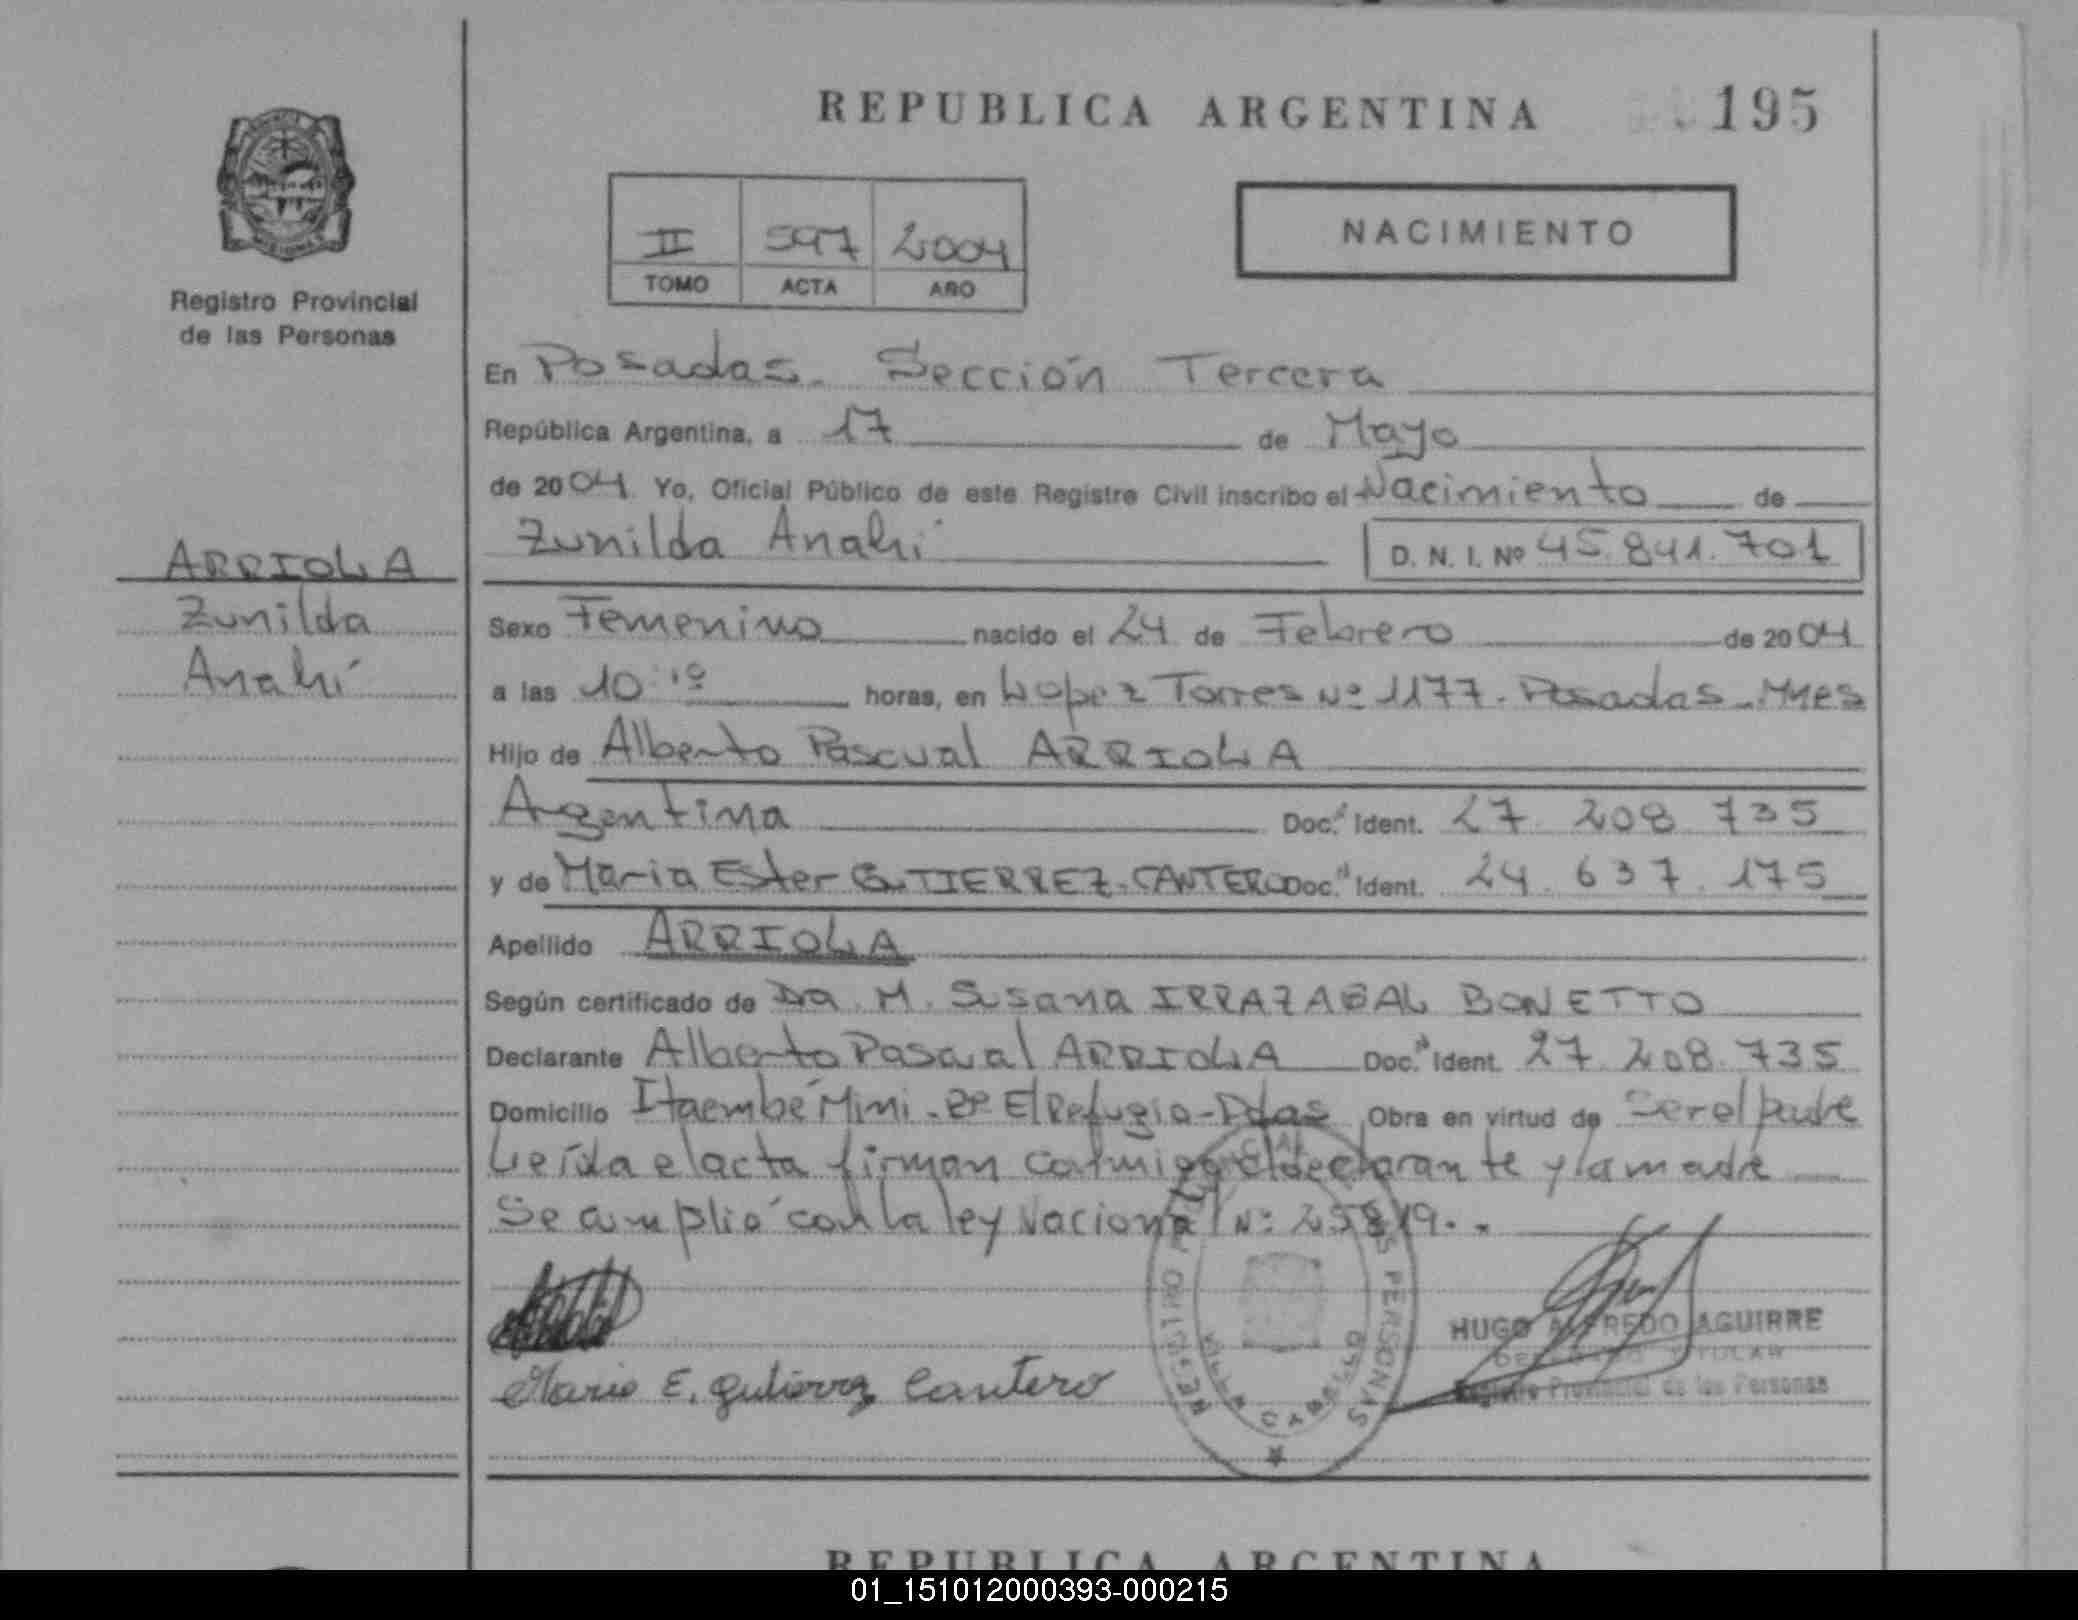 REPUBLICA ARGENTINA 195
II 597 2004
TOMO ACTA AÑO
NACIMIENTO
Registro Provincial
de las Personas
En Posadas. Sección Tercera
República Argentina, a 17 de Mayo
de 2004 Yo, Oficial Público de este Registro Civil inscribo el Nacimiento de
Zunilda Anahí D. N. I. Nº 45.841.701
ARRIOLA
Zunilda
Anahí
Sexo Femenino nacido el 24 de Febrero de 2004
a las 10:10 horas, en Lopez Torres Nº 1177. Posadas. Mnes
Hijo de Alberto Pascual ARRIOLA
Argentina Doc. Ident. 27.208.735
y de María Ester GUTIERREZ CANTERO Doc. Ident. 24.637.175
Apellido ARRIOLA
Según certificado de Dra. M. Susana IRRAZABAL BONETTO
Declarante Alberto Pascual ARRIOLA Doc. Ident. 27.208.735
Domicilio Itaembé Mini - Bº El Refugio - Pdas Obra en virtud de Ser el padre
Leída el acta firman conmigo el declarante y la madre
Se cumplió con la ley Nacional Nº 25819..
HUGO ALFREDO AGUIRRE
DELEGADO TITULAR
Registro Provincial de las Personas
Maria E. Gutierrez Cantero
PERSONAS
VILLA CABELLO
REPUBLICA ARGENTINA
01_151012000393-000215